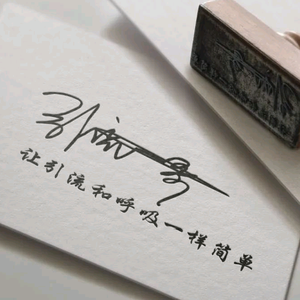 引流哥
让引流和呼吸一样简单